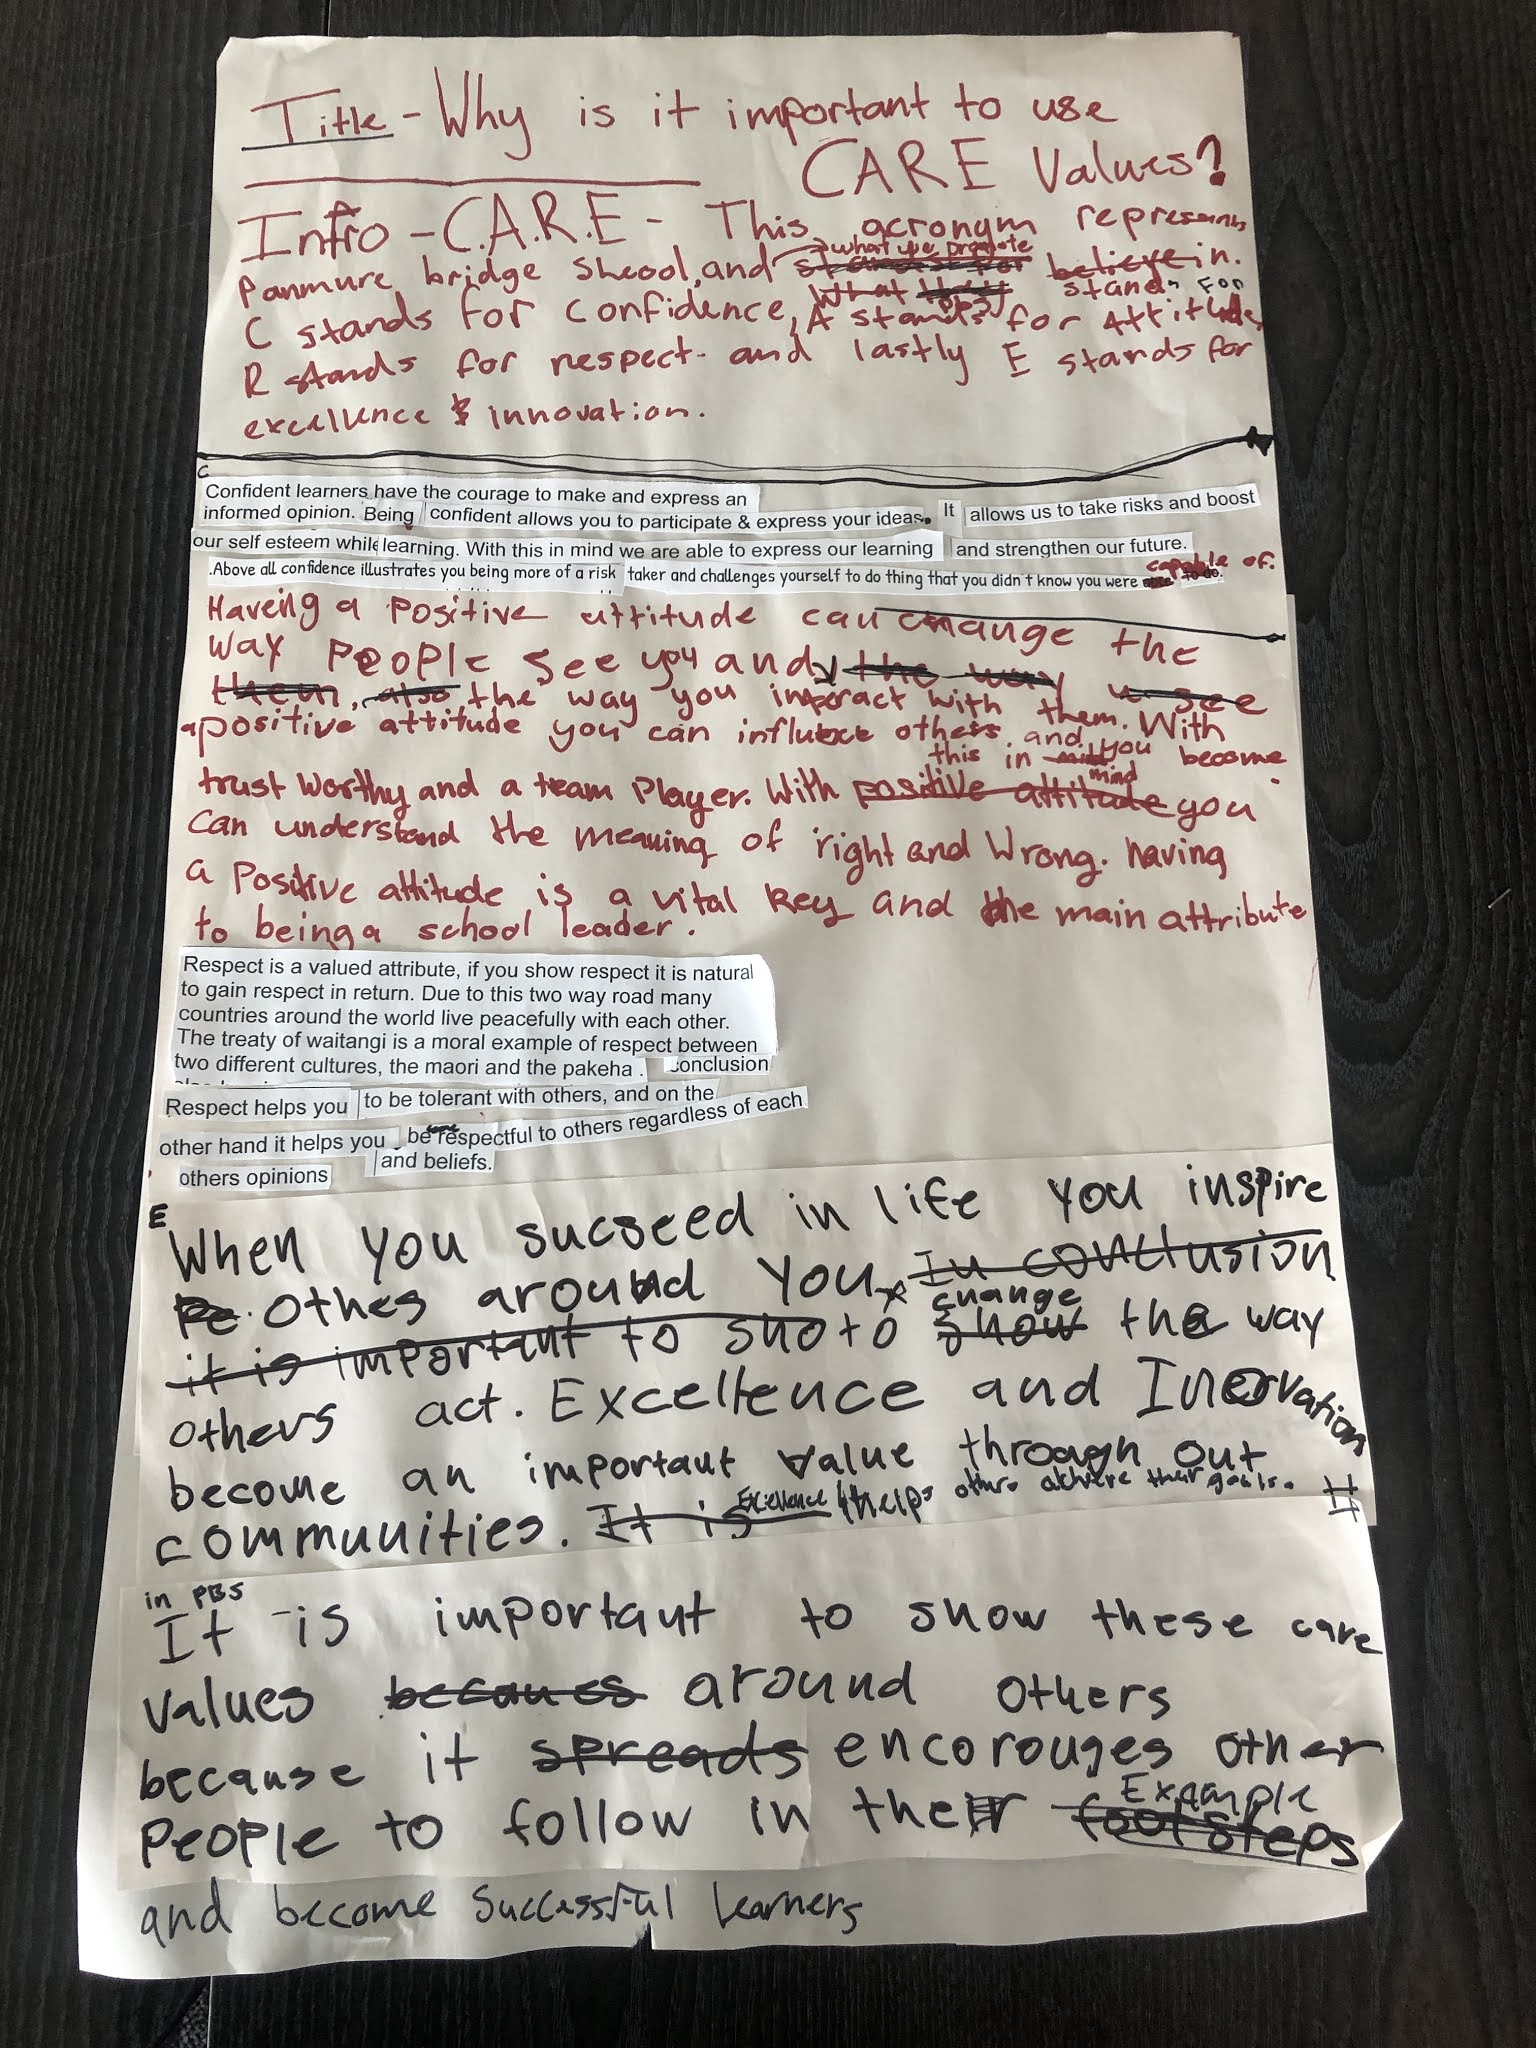 Title - Why is it important to use
CARE Values?
Intro - C.A.R.E - This acronym represents
what we promote
Panmure bridge Shcool, and believe in.
What stands for
C stands for confidence, A stands for Attitude
R stands for respect. and lastly E stands for
excellence & innovation.
C
Confident learners have the courage to make and express an
informed opinion. Being confident allows you to participate & express your ideas. It allows us to take risks and boost
our self esteem while learning. With this in mind we are able to express our learning and strengthen our future.
capable of.
.Above all confidence illustrates you being more of a risk taker and challenges yourself to do thing that you didn't know you were able to do.
Haveing a positive attitude can change the
way people see you and the way u see
them, also the way you interact with them. With
a positive attitude you can influence others. and
this in mind you become
trust worthy and a team Player. With positive attitude you
can understand the meaning of right and wrong. having
a Positive attitude is a vital key and the main attribute
to being a school leader.
Respect is a valued attribute, if you show respect it is natural
to gain respect in return. Due to this two way road many
countries around the world live peacefully with each other.
The treaty of waitangi is a moral example of respect between
two different cultures, the maori and the pakeha . conclusion
Respect helps you to be tolerant with others, and on the
other hand it helps you be respectful to others regardless of each
others opinions and beliefs.
E
When you sucseed in life you inspire
Pe. othes around you In conclusion
change
it is important to sho to show the way
others act. Excellence and Inorvation
become an important value through out
communities. It is Excellence helps others achieve their goals. #
in PBS
It is important to show these care
values becaues around others
because it spreads encorouges other
Example
People to follow in their footsteps
and become Successful learners